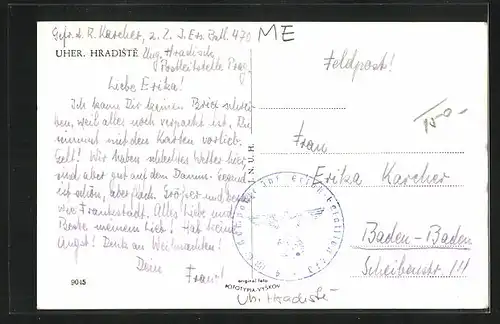 Gefr. d. R. Karcher, z. Z. I. Ers. Batl. 470
ME
UHER. HRADIŠTĚ
Ung. Hradisch
Postleitstelle Prag
Feldpost!
Liebe Erika!
Ich kann Dir keinen Brief schrei-
ben, weil alles noch verpackt ist. Du
nimmst mit den Karten vorlieb.
Gelt! Wir haben schlechtes Wetter hier
und aber gut auf dem Damm. Gegend
ist schön, aber flach. Größer und
wie Frankestadt. Alles Liebe und
Beste meinem Lieb! Hab keine
Angst! Denk an Weihnachten!
Dein
Franz!
15.-
Frau
Erika Karcher
Baden-Baden
Scheibenstr. 11
N. U. H.
9045
original foto
FOTOTYPIA-VYŠKOV
Uh. Hradiště